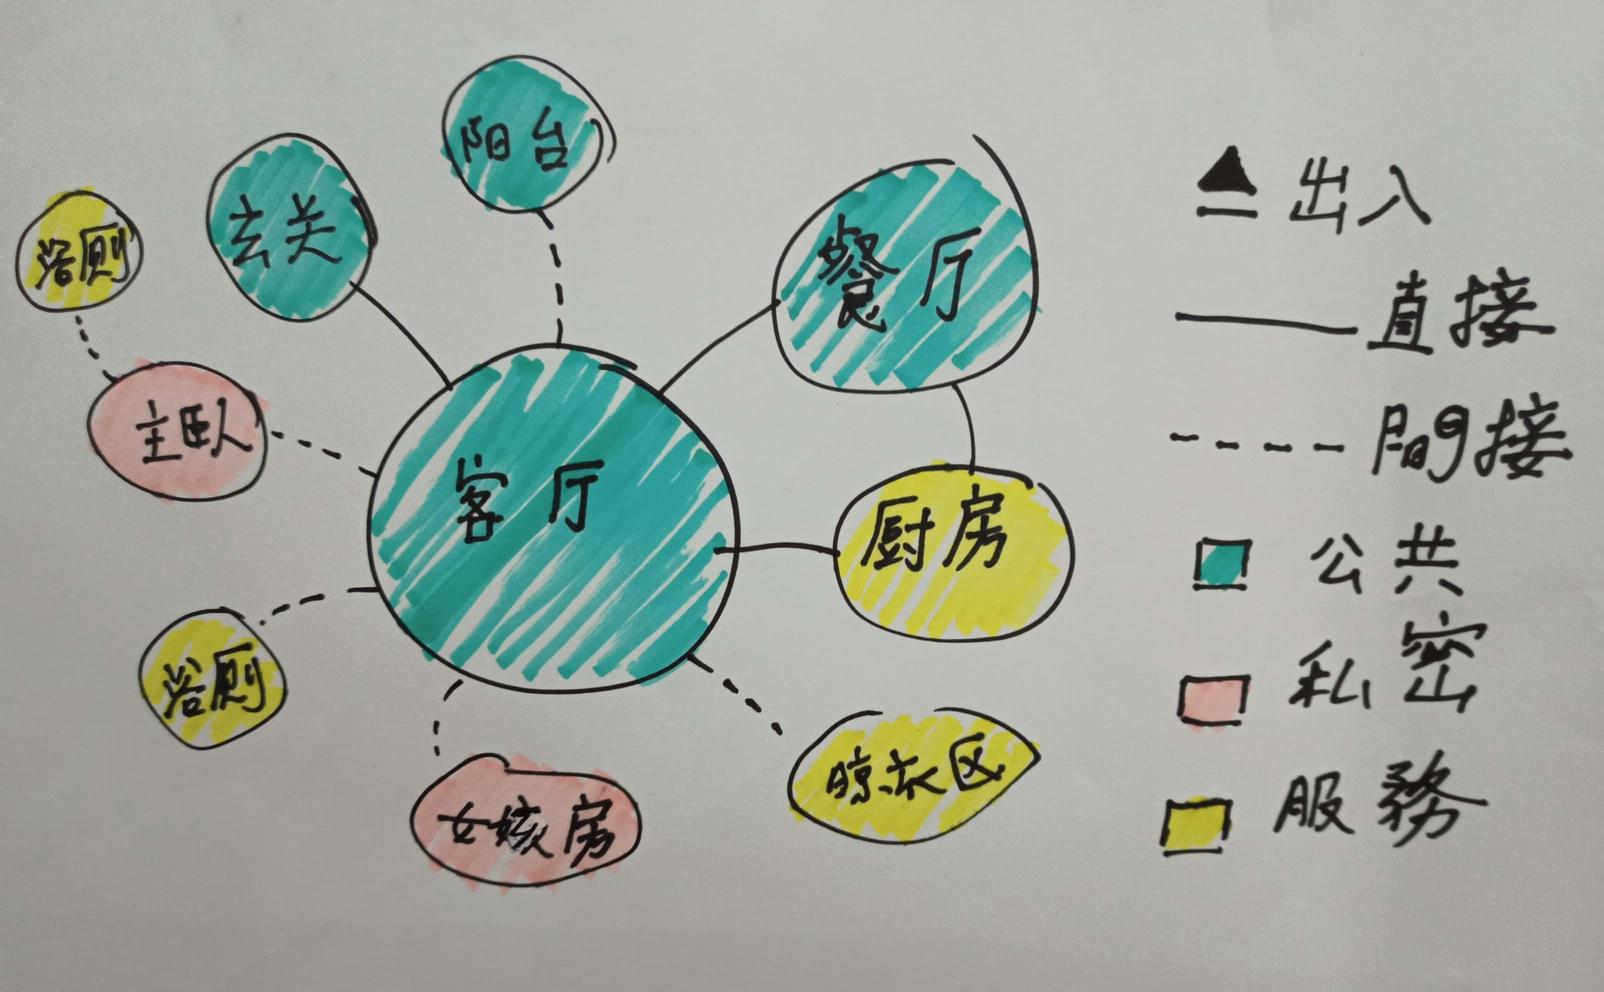 阳台
玄关
浴厕
餐厅
主臥
客厅
厨房
浴厕
晾衣区
女孩房
出入
直接
間接
公共
私密
服務